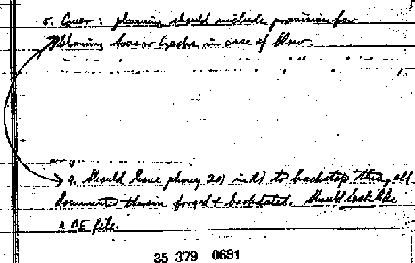 5. Cover: planning should include provision for
blaming Sovs or Czechs in case of blow.
9. Should have phony 201 in RI to backstop this, all
documents therein forged & backdated. Should look like
a CE file.
35 379 0681